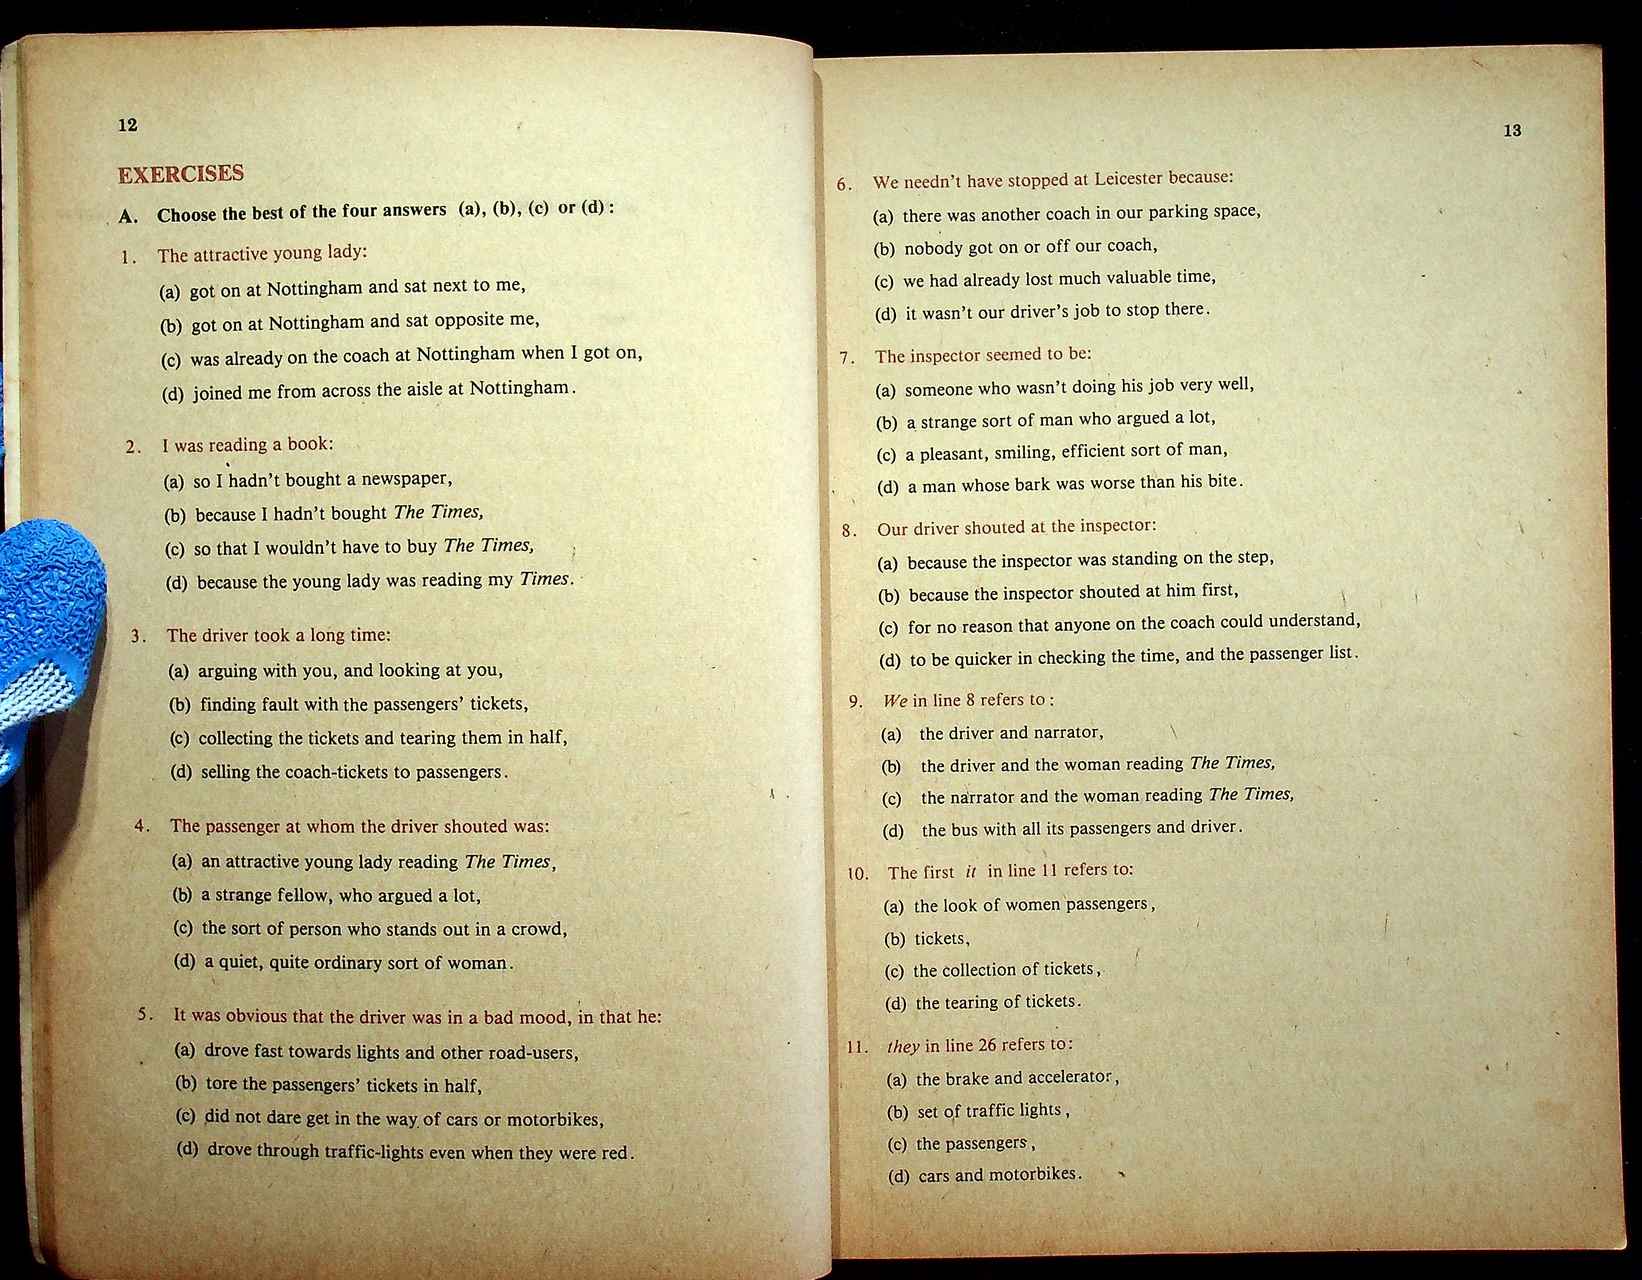 12
EXERCISES
A. Choose the best of the four answers (a), (b), (c) or (d) :
1. The attractive young lady:
(a) got on at Nottingham and sat next to me,
(b) got on at Nottingham and sat opposite me,
(c) was already on the coach at Nottingham when I got on,
(d) joined me from across the aisle at Nottingham.
2. I was reading a book:
(a) so I hadn't bought a newspaper,
(b) because I hadn't bought The Times,
(c) so that I wouldn't have to buy The Times,
(d) because the young lady was reading my Times.
3. The driver took a long time:
(a) arguing with you, and looking at you,
(b) finding fault with the passengers' tickets,
(c) collecting the tickets and tearing them in half,
(d) selling the coach-tickets to passengers.
4. The passenger at whom the driver shouted was:
(a) an attractive young lady reading The Times,
(b) a strange fellow, who argued a lot,
(c) the sort of person who stands out in a crowd,
(d) a quiet, quite ordinary sort of woman.
5. It was obvious that the driver was in a bad mood, in that he:
(a) drove fast towards lights and other road-users,
(b) tore the passengers' tickets in half,
(c) did not dare get in the way of cars or motorbikes,
(d) drove through traffic-lights even when they were red.
13
6. We needn't have stopped at Leicester because:
(a) there was another coach in our parking space,
(b) nobody got on or off our coach,
(c) we had already lost much valuable time,
(d) it wasn't our driver's job to stop there.
7. The inspector seemed to be:
(a) someone who wasn't doing his job very well,
(b) a strange sort of man who argued a lot,
(c) a pleasant, smiling, efficient sort of man,
(d) a man whose bark was worse than his bite.
8. Our driver shouted at the inspector:
(a) because the inspector was standing on the step,
(b) because the inspector shouted at him first,
(c) for no reason that anyone on the coach could understand,
(d) to be quicker in checking the time, and the passenger list.
9. We in line 8 refers to :
(a) the driver and narrator,
(b) the driver and the woman reading The Times,
(c) the narrator and the woman reading The Times,
(d) the bus with all its passengers and driver.
10. The first it in line 11 refers to:
(a) the look of women passengers,
(b) tickets,
(c) the collection of tickets,
(d) the tearing of tickets.
11. they in line 26 refers to:
(a) the brake and accelerator,
(b) set of traffic lights,
(c) the passengers,
(d) cars and motorbikes.